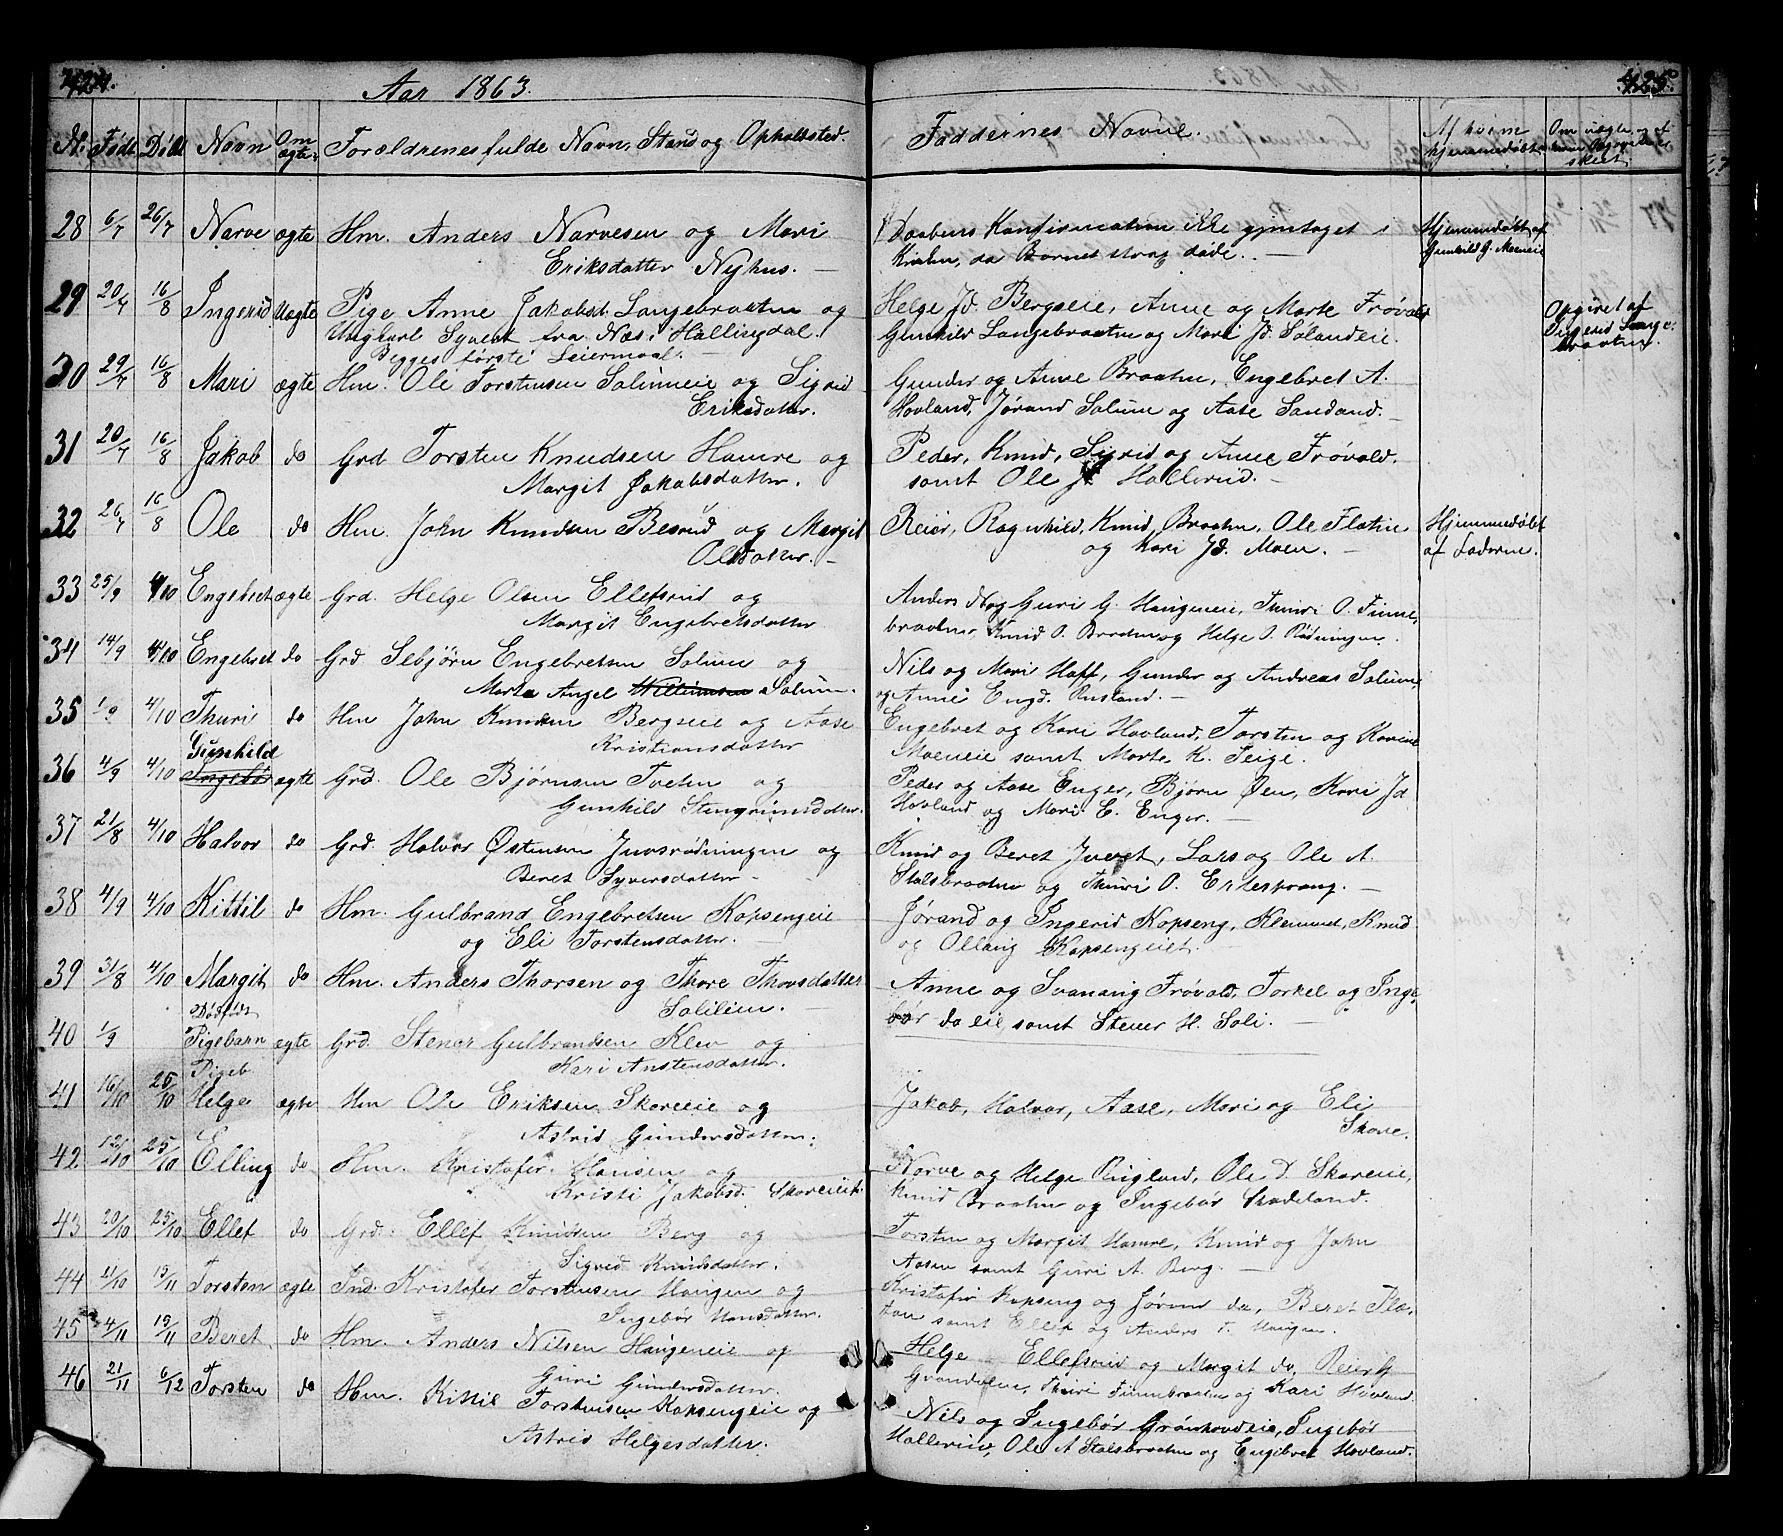 424.
Aar 1863.
425.
No Født Døbt Navn Om ægte Forældrenes fulde Navn, Stand og Opholdsted. Faddernes Navne. Af hvem hjemmedøbt Om uægte,
28 6/7 26/7 Narve ægte Hm. Anders Narvesen og Mari
Eriksdatter Nyhus. —
Daabens Konfirmation ikke gjentaget i
Kirken, da Barnet strax døde. —
Hjemmedøbt af
Gunhild G. Moeneie
29 20/7 16/8 Ingerid Uægte Pige Anne Jakobsd. Langebraaten og
Ungkarl Syvert fra Næs i Hallingdal.
Begges første Leiermaal. —
Helge Jd. Bergseie, Anne og Marte Frøvold
Gunhild Langebraaten og Mari Jd. Solandeie.
Opgivet af
Ingerid Lange-
braaten.
30 29/7 16/8 Mari ægte Hm. Ole Torstensen Salumeie og Sigrid
Eriksdatter.
Gunder og Anne Braaten, Engebret A.
Hovland, Jørand Salum og Aase Sandand. —
31 20/7 16/8 Jakob do Grd Torsten Knudsen Hamre og
Margit Jakobsdatter.
Peder, Knud, Sigrid og Anne Frøvold.
samt Ole J. Hallerud. —
32 26/7 16/8 Ole do Hm. John Knudsen Besrud og Margit
Olsdatter. —
Reier, Ragnhild, Knud Braaten, Ole Flatin
og Kari Jd. Moen. —
Hjemmedøbt
af Faderne.
33 25/9 4/10 Engebret ægte Grd. Helge Olsen Ellefsrud og
Margit Engebretsdatter
Anders N og Guri G. Haugeneie, Thuri O. Finne-
braaten, Knud O. Braaten og Helge O. Rødningen.
34 14/9 4/10 Engebret do Grd Sebjørn Engebretsen Salum og
Marta Angel Willumsen Salum.
Nils og Mari Hoff, Gunder og Andreas Salum,
og Anne Engd. Rustand. —
35 1/9 4/10 Thuri do Hm John Knudsen Bergseie og Aase
Kristiansdatter
Engebret og Kari Hovland, Torsten og Karine
Moeneie samt Marte K. Teige.
Gunhild
36 4/9 4/10 Ingebør ægte Grd. Ole Bjørnsen Tveten og
Gunhild Stengrimsdatter.
Peder og Aase Enger, Bjørn Øen, Kari Jd
Hovland og Mari E. Enger. —
37 21/8 4/10 Halvor do Grd. Halvor Østensen Juvsrødningen og
Beret Syversdatter —
Knud og Beret Juvet, Lars og Ole A.
Stalsbraaten og Thuri O. Ertesprang. —
38 4/9 4/10 Kittil do Hm. Gulbrand Engebretsen Kopsengeie
og Eli Torstensdatter. —
Jørand og Ingerid Kopseng, Klemmet, Knud
og Ollaug Kopsengeiet.
39 31/8 4/10 Margit do Hm. Anders Thorsen og Thore Thovsdatter
Solileim. —
Anne og Svanaug Frøvold, Torkel og Inge-
bør do eie samt Stener H. Soli. —
Dødfødt
40 1/9 Pigebarn ægte Grd. Stener Gulbrandsen Klev og
Kari Anstensdatter.
Pigeb.
41 16/10 25/10 Helge ægte Hm Ole Eriksen Skareeie og
Astrid Gundersdatter.
Jakob, Halvor, Aase, Mari og Eli
Skare.
42 12/10 25/10 Elling do Hm. Kristofer Hansen og
Kristi Jakobsd. Skareeie.
Narve og Helge Ruglund, Ole D. Skareeie,
Knud Braaten og Ingebør Skadeland.
43 20/10 25/10 Ellef do Grd. Ellef Knudsen Berg og
Sigrid Knudsdatter.
Torsten og Margit Hamre, Knud og John
Aasen samt Guri A. Berg. —
44 11/10 15/11 Torsten ægte Ind. Kristofer Torstensen Haugen og
Ingebør Hansdatter.
Kristofer Kopseng og Jørand do, Beret Flæ-
samt Ellef og Anders T. Haugen.
45 4/11 15/11 Beret do Hm. Anders Nilsen Haugeneie og
Guri Gundersdatter.
Helge Ellefsrud og Margit do, Reier G
Grøndalen, Thuri Finnebraaten og Kari Hovland.
46 21/11 6/12 Torsten do Hm. Kittil Torstensen Kopsengeie og
Astrid Helgesdatter.
Nils og Ingebør Grønhovdeie, Ingebør
Hallereie, Ole A Stalsbraaten og Engebret Hovland.